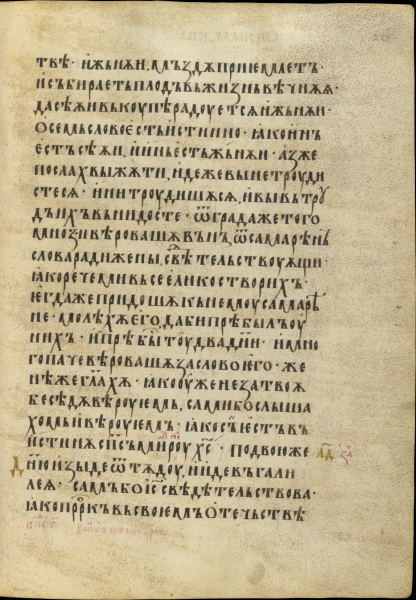 твѣ · и жьнѧи мъздѫ приемлетъ ·
и събираетъ плодъ вь жизнь вѣчнѫѧ ·
да сѣѧи вькоупѣ радоуетсѧ и жьнѧи ·
о семь слово естъ истинно · ꙗко инъ
естъ сѣѧи, и инь естъ жьнѧи · азже
послахь вы жѧти, идеже вы не троуди
стесѧ · ини троудишѫсѧ, и вы вь троу
дъ ихъ вьнидосте · ѿ града же того
мнози вѣровашѧ вънь, ѿ самарѣнь
слова ради жены, свѣтельствоуѧщи ·
ꙗко рече ми вьсе елико створихъ ·
и егда же придошѧ кь немоу самарѣ
не · молѣхѫ его, да би прѣбылъ оу
нихъ · и прѣбы тоу два дни · и мно
го паче вѣровашѧ за слово его · же
нѣже глахѫ · ꙗко оуже не за твоѧ
бесѣдѫ вѣроуемь, сами бо слыша
хомь и вѣроуемъ · ꙗко сь естъ въ
истинѫ спсъ мироу хс · по двою же
днїю изыде ѿ тѫдоу, и иде вь гали
леѧ · самъ бо іс свѣдѣтельствова ·
ꙗко пррокъ вь своемь отечьствѣ